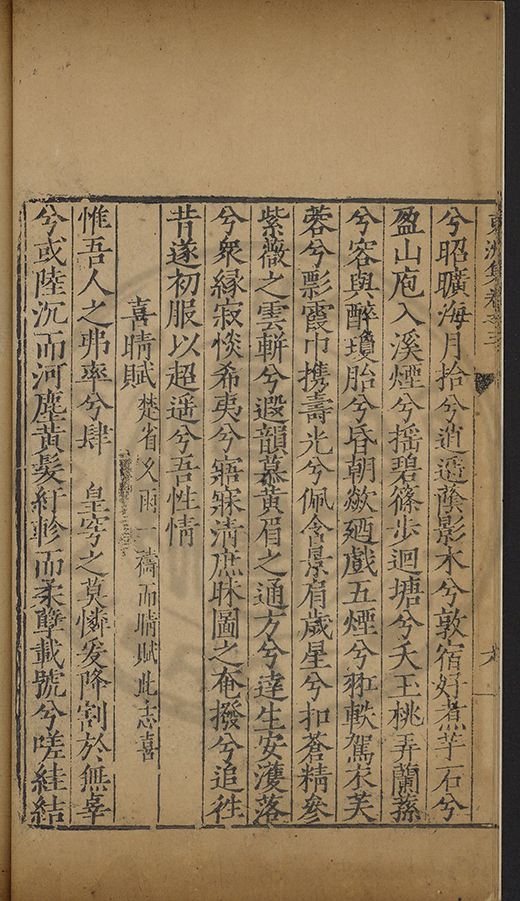 東洲集卷之二
兮昭曠海月拾兮逍遙蔭影木兮敦宿好煮芋石兮
盈山庖入溪煙兮搖碧篠步迴塘兮夭玉桃弄蘭蓀
兮容與醉瓊胎兮昏朝歘廼戲五煙兮翃軼駕衣芙
蓉兮影霞巾携壽光兮佩含景肩歲星兮扣蒼精參
紫薇之雲軿兮遐韻慕黃眉之通方兮達生安濩落
兮衆緣寂惔希夷兮寤寐清庶昧圖之奄撥兮追徃
昔遂初服以超遥兮吾性情
喜晴賦 楚省久雨一禱而晴賦此志喜
惟吾人之弗率兮肆 皇穹之莫憐爰降割於無辜
兮或陸沉而河塵黃髮紆軫而柔孽載號兮嗟絓結